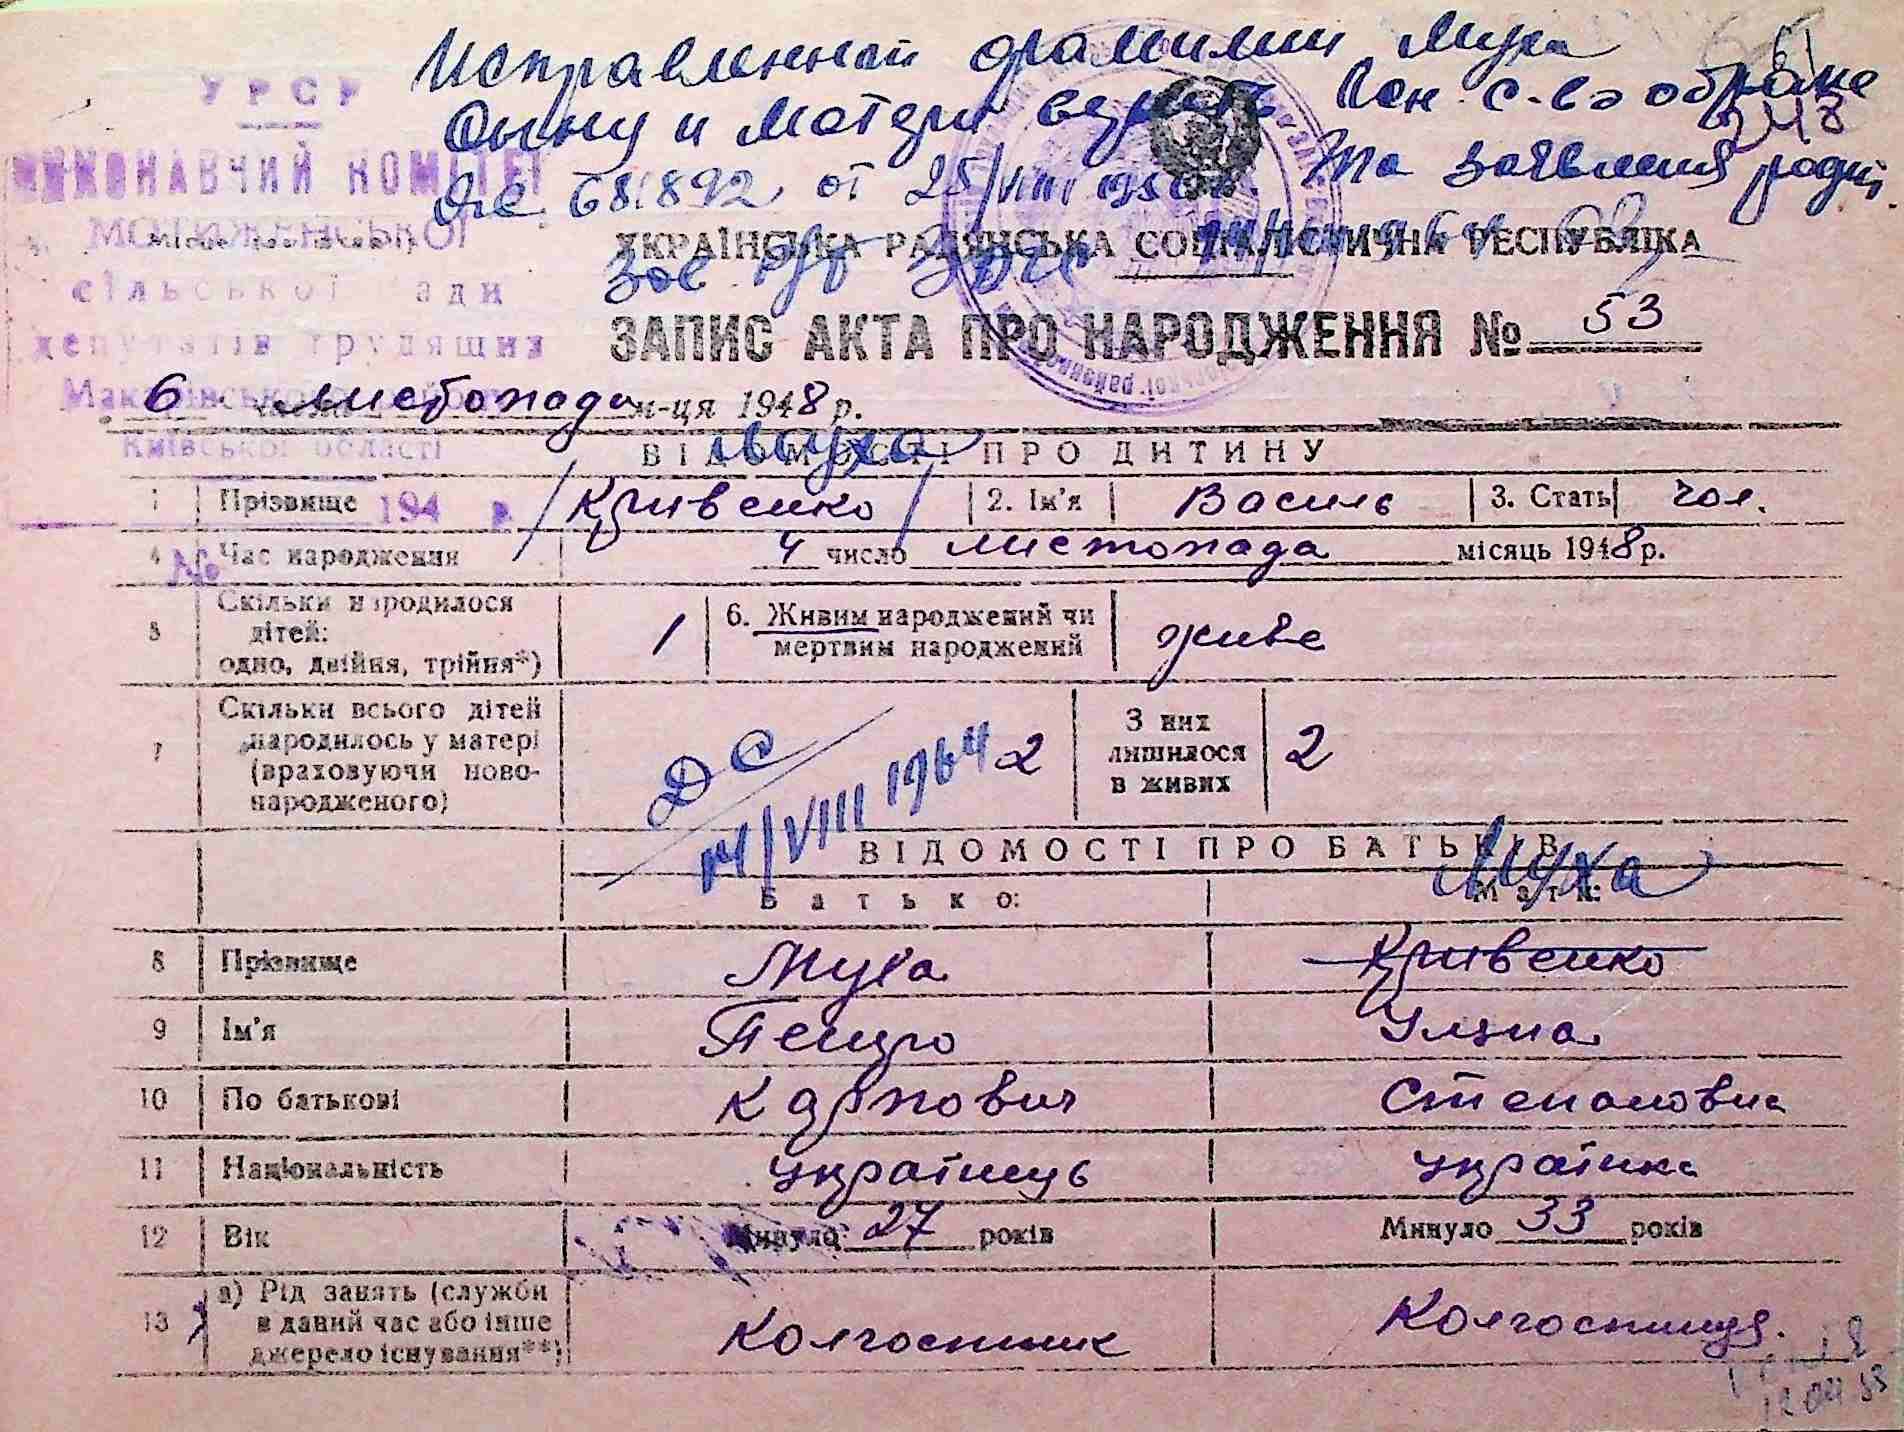 Исправленной фамилии Муха
Сыну и матери верить
от 25/VIII 195 На заявления
УРСР
ВИКОНАВЧИЙ КОМІТЕТ
МОТИЖЕНСЬКОЇ
сільської ради
депутатів трудящих
Макарівського
Київської області
194 р.
№
УКРАЇНСЬКА РАДЯНСЬКА СОЦІАЛІСТИЧНА РЕСПУБЛІКА
ЗАПИС АКТА ПРО НАРОДЖЕННЯ № 53
6 листопада м-ця 1948 р.
Муха
ВІДОМОСТІ ПРО ДИТИНУ
1 Прізвище / Кривенко / 2. Ім'я Василь 3. Стать чол.
4 Час народження 4 число листопада місяць 1948 р.
5 Скільки народилося
дітей:
одно, двійня, трійня*) 1 6. Живим народжений чи
мертвим народжений живе
7 Скільки всього дітей
народилось у матері
(враховуючи ново-
народженого) 2 З них
лишилося
в живих 2
ДС
14/VIII 1964
ВІДОМОСТІ ПРО БАТЬКІВ
Муха
Батько: Мати:
8 Прізвище Муха Кривенко
9 Ім'я Петро Уляна
10 По батькові Карпович Степановна
11 Національність українець українка
12 Вік Минуло 27 років Минуло 33 років
13 а) Рід занять (служби
в даний час або інше
джерело існування**) Колгоспник Колгоспниця.